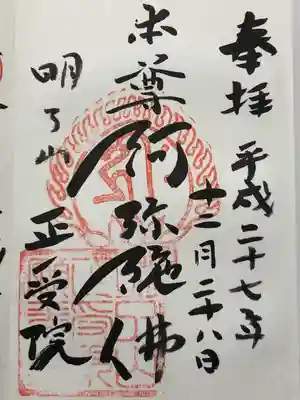 奉拝
平成二十七年
十二月二十八日
本尊阿弥陀佛
明了山
正受院